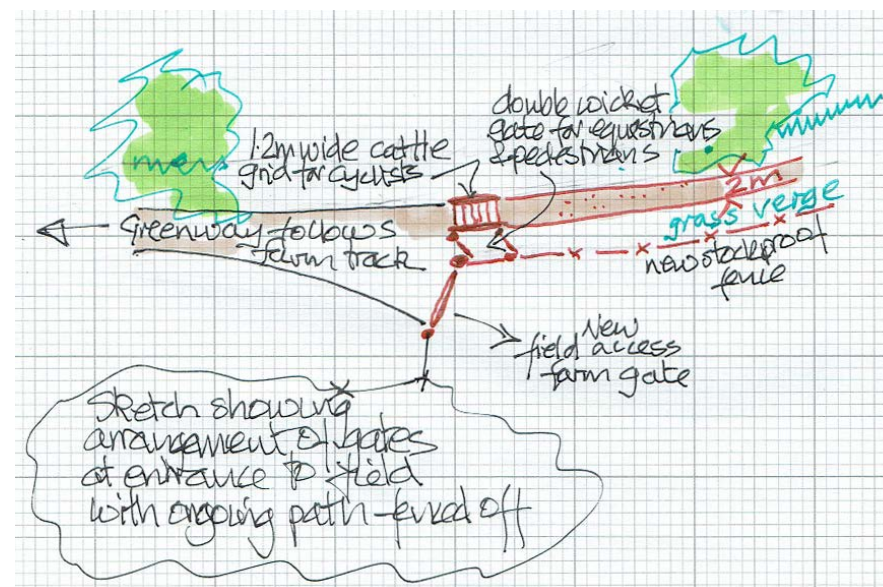 double wicket
gate for equestrians
& pedestrians
1.2m wide cattle
grid for cyclists
2m
grass verge
Greenway follows
farm track
new stockproof
fence
New
field access
farm gate
Sketch showing
arrangement of gates
at entrance to field
with ongoing path fenced off